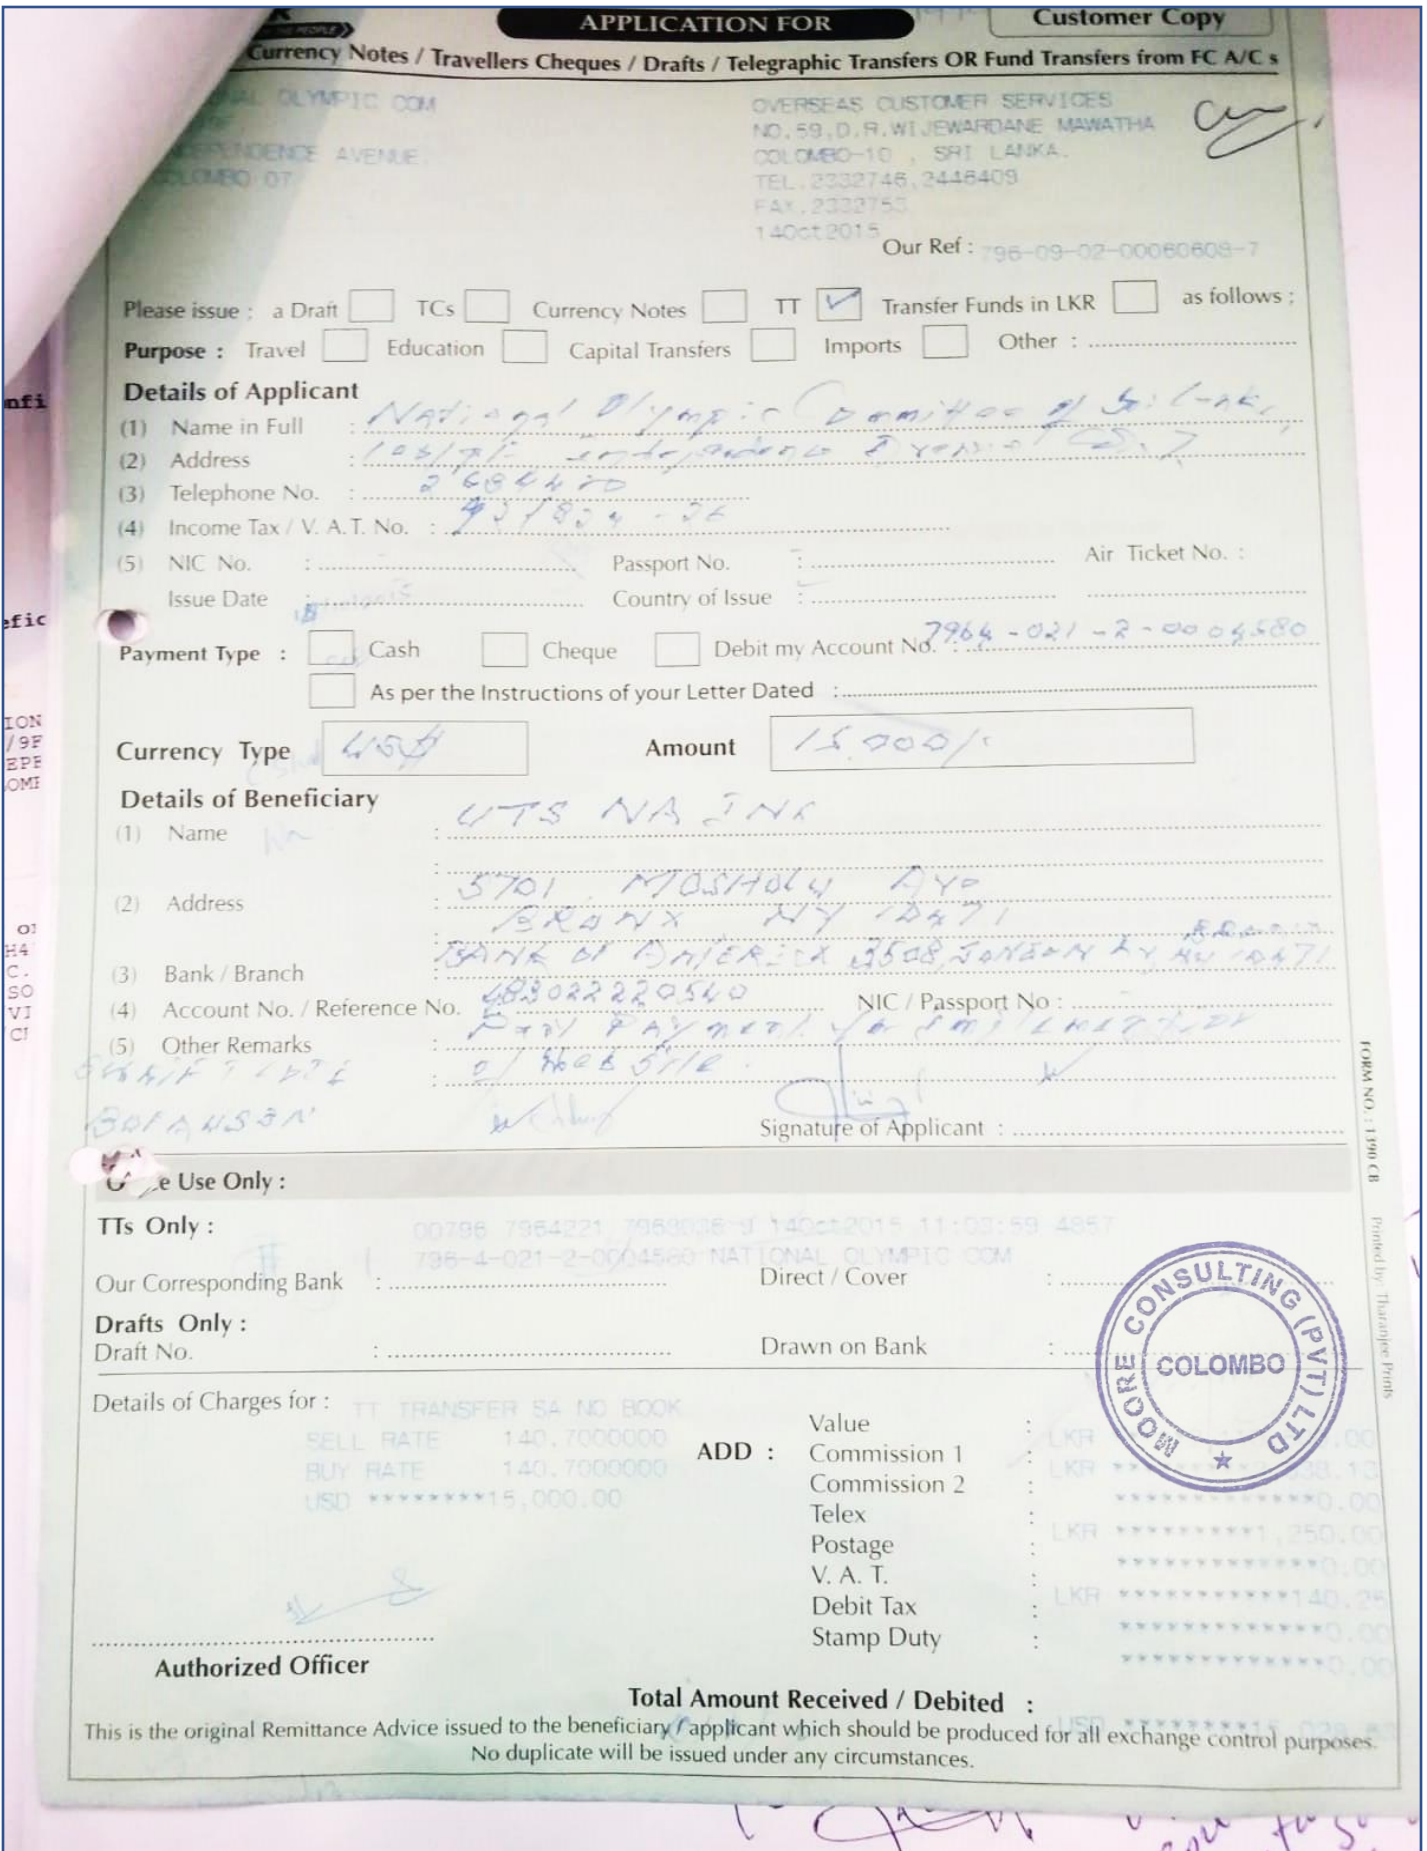 APPLICATION FOR
Customer Copy
Currency Notes / Travellers Cheques / Drafts / Telegraphic Transfers OR Fund Transfers from FC A/C s
NAL OLYMPIC COM
OVERSEAS CUSTOMER SERVICES
NO.59,D.R.WIJEWARDANE MAWATHA
EPENDENCE AVENUE
COLOMBO-10 , SRI LANKA.
COLOMBO 07
TEL.2332746,2446409
FAX.2332753
14Oct2015
Our Ref : 796-09-02-00060608-7
Please issue : a Draft TCs Currency Notes TT ✓ Transfer Funds in LKR as follows :
Purpose : Travel Education Capital Transfers Imports Other :
Details of Applicant
(1) Name in Full : National Olympic Committee of Sri Lanka,
(2) Address :
(3) Telephone No. :
(4) Income Tax / V. A.T. No. :
(5) NIC No. : Passport No. : Air Ticket No. :
Issue Date : Country of Issue :
Payment Type : Cash Cheque Debit my Account No. : 7964-021-2-0004580
As per the Instructions of your Letter Dated :
Currency Type US$ Amount 15,000/-
Details of Beneficiary
(1) Name : UTS NA INC
(2) Address : 5701 MOSHOLU AVE
BRONX NY 10471
(3) Bank / Branch BANK OF AMERICA
(4) Account No. / Reference No. 483022220540 NIC / Passport No :
(5) Other Remarks : Part Payment for
of Web Site.
BOFAUS3N
Signature of Applicant :
e Use Only :
TTs Only :
00796 7964221 14Oct2015 11:03:59 4857
796-4-021-2-0004580 NATIONAL OLYMPIC COM
Our Corresponding Bank : Direct / Cover :
Drafts Only :
Draft No. : Drawn on Bank :
MOORE CONSULTING (PVT) LTD
COLOMBO
Details of Charges for : TT TRANSFER SA NO BOOK
SELL RATE 140.7000000
BUY RATE 140.7000000
USD ********15,000.00
ADD :
Value : LKR
Commission 1 : LKR
Commission 2 *************0.00
Telex : LKR *********1,250.00
Postage : *************0.00
V. A. T. : LKR ***********140.25
Debit Tax : *************0.00
Stamp Duty : *************0.00
Authorized Officer
Total Amount Received / Debited :
This is the original Remittance Advice issued to the beneficiary / applicant which should be produced for all exchange control purposes.
No duplicate will be issued under any circumstances.
FORM NO. : 1390 CB Printed by: Tharanjee Prints